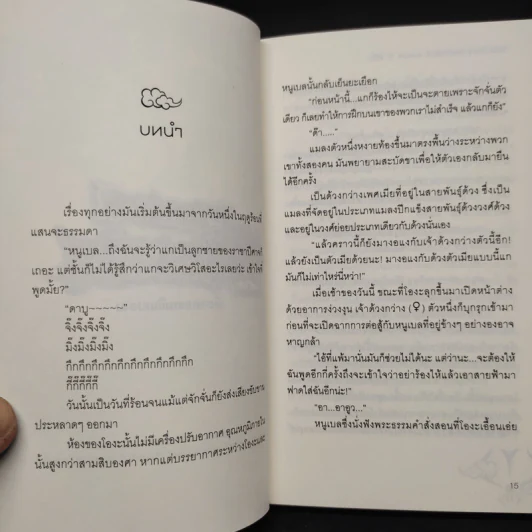 บทนำ
เรื่องทุกอย่างมันเริ่มต้นขึ้นมาจากวันหนึ่งในฤดูร้อนที่
แสนจะธรรมดา
"หนูเบล...ถึงฉันจะรู้ว่าแกเป็นลูกชายของราชาปีศาจก็
เถอะ แต่ชั้นก็ไม่ได้รู้สึกว่าแกจะวิเศษวิโสอะไรเลยว่ะ เข้าใจที่
พูดมั้ย?"
"ดาบู~~~~~"
จิ๊งจิ๊งจิ๊งจิ๊ง
มิ๊งมิ๊งมิ๊งมิ๊ง
กึกกึกกึกกึกกึกกึกกึกกึกกึกกึกกึก
วันนั้นเป็นวันที่ร้อนจนแม้แต่จักจั่นก็ยังส่งเสียงขับขาน
ประหลาดๆ ออกมา
ห้องของโองะนั้นไม่มีเครื่องปรับอากาศ อุณหภูมิภายใน
นั้นสูงกว่าสามสิบองศา หากแต่บรรยากาศระหว่างโองะและ
หนูเบลนั้นกลับเย็นยะเยือก
"ก่อนหน้านี้...แกก็ร้องไห้จะเป็นจะตายเพราะจักจั่นตัว
เดียว ก็เลยทำให้การฝึกบนเขาของพวกเราไม่สำเร็จ แล้วแกก็ยัง"
"ด๊า....."
แมลงตัวหนึ่งหงายท้องขึ้นมาตรงพื้นว่างระหว่างพวก
เขาทั้งสองคน มันพยายามสะบัดขาเพื่อให้ตัวเองกลับมายืน
ได้อีกครั้ง
เป็นด้วงกว่างเพศเมียที่อยู่ในสายพันธุ์ด้วง ซึ่งเป็น
แมลงที่จัดอยู่ในประเภทแมลงปีกแข็งสายพันธุ์ด้วงวงศ์ด้วง
และอยู่ในวงศ์ย่อยประเภทเดียวกับด้วงนั่นเอง
"แล้วคราวนี้ก็ยังมางอแงกับเจ้าด้วงกว่างตัวนี้อีก!
แล้วยังเป็นตัวเมียด้วยนะ! มางอแงกับด้วงตัวเมียแบบนี้แก
มันก็ไม่เท่าไหร่นี่หว่า!"
เมื่อเช้าของวันนี้ ขณะที่โองะลุกขึ้นมาเปิดหน้าต่าง
ด้วยอาการง่วงงุน เจ้าด้วงกว่าง (♀) ตัวหนึ่งก็บุกรุกเข้ามา
ก่อนที่จะเปิดฉากการต่อสู้กับหนูเบลที่อยู่ข้างๆ อย่างองอาจ
หาญกล้า
"ไอ้ที่แพ้มานั่นมันก็ช่วยไม่ได้นะ แต่ว่านะ...จะต้องให้
ฉันพูดอีกกี่ครั้งถึงจะเข้าใจว่าอย่าร้องไห้แล้วเอาสายฟ้ามา
ฟาดใส่ฉันอีกน่ะ!"
"อา...อาอูว..."
หนูเบลซึ่งนั่งฟังพระธรรมคำสั่งสอนที่โองะเอื้อนเอ่ย
15